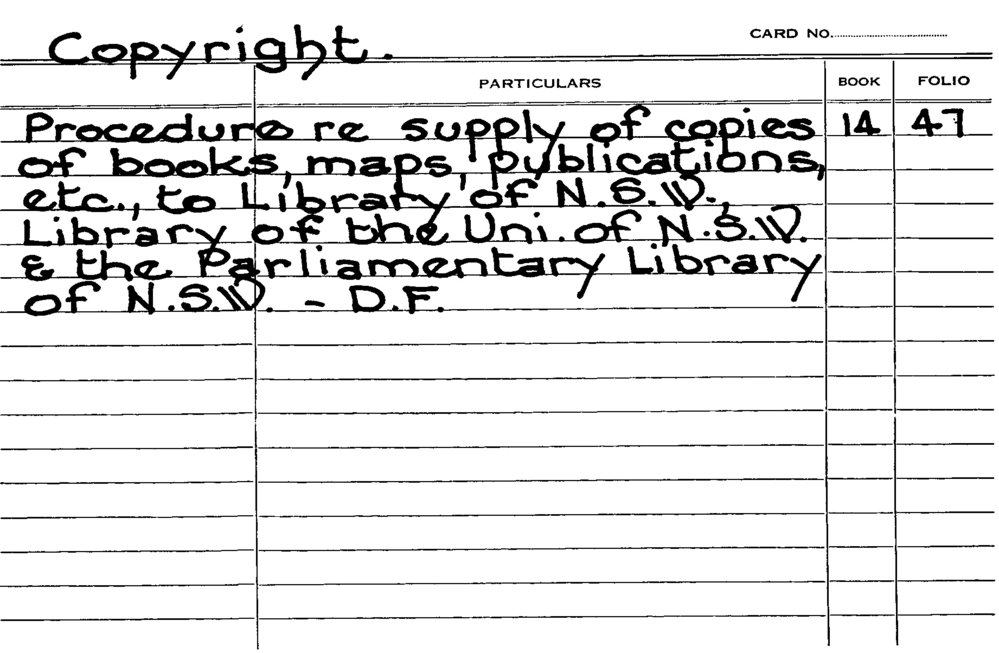 Copyright.
CARD NO.
PARTICULARS BOOK FOLIO
Procedure re supply of copies 14 47
of books, maps, publications,
etc., to Library of N.S.W.,
Library of the Uni. of N.S.W.
& the Parliamentary Library
of N.S.W. - D.F.